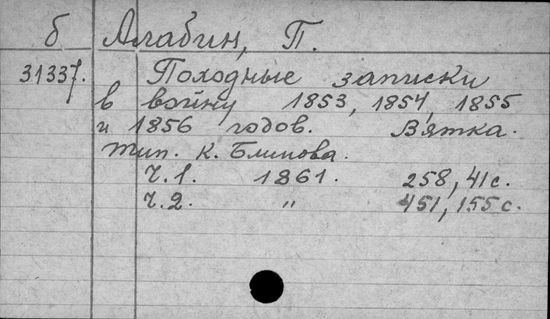 б Алабин, П.
31337. Походные записки
в войну 1853, 1854, 1855
и 1856 годов. Вятка.
тип. К. Блинова.
Ч.1. 1861. 258, 41 с.
Ч.2. " 451, 155 с.